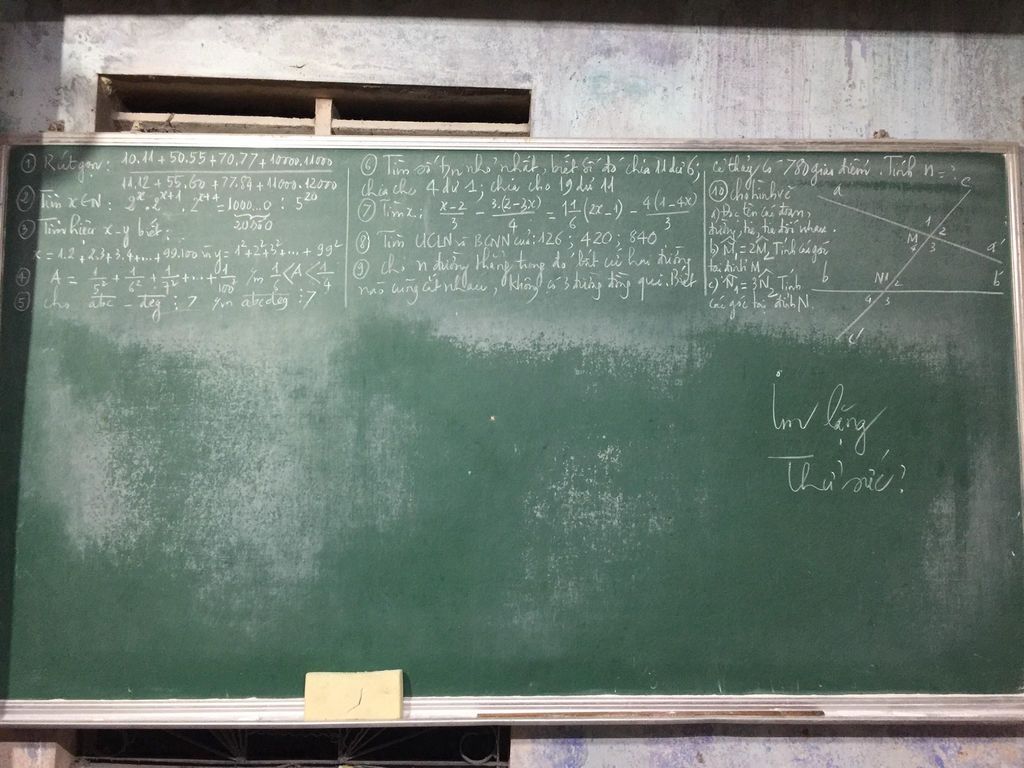 ① Rút gọn: (10.11 + 50.55 + 70.77 + 10000.11000)/(11.12 + 55.60 + 77.84 + 11000.12000)
② Tìm x ∈ N: 2^x . 2^(x+1) . 2^(x+4) = 1000...0 : 5^20
③ Tìm hiệu x - y biết:
x = 1.2 + 2.3 + 3.4 + ... + 99.100 y = 1² + 2² + 3² + ... + 99²
④ A = 1/5² + 1/6² + 1/7² + ... + 1/100² 1/6 < A < 1/4
⑤ cho abc - deg : 7 abcdeg : 7
⑥ Tìm số tn nhỏ nhất, biết số đó chia 11 dư 6;
chia cho 4 dư 1; chia cho 19 dư 11
⑦ Tìm x: (x-2)/3 - 3.(2-3x)/4 = 1 1/6 (2x-1) - 4(1-4x)/3
⑧ Tìm ƯCLN và BCNN của: 126; 420; 840
⑨ cho n đường thẳng trong đó bất cứ hai đường
nào cũng cắt nhau, không có 3 đường đồng qui. Biết
có thảy có 780 giao điểm. Tính n = ?
⑩ Cho hình vẽ
a) tên các đoạn,
đường, tia, tia đối nhau.
b) M₁ = 2M₂ Tính các góc
tại đỉnh M
c) N₁ = 3N₂ Tính
các góc tại đỉnh N.
a
c
1
2
M
4
3
a'
b
N 1
2
b'
4
3
c'
Im lặng
Thử sức?